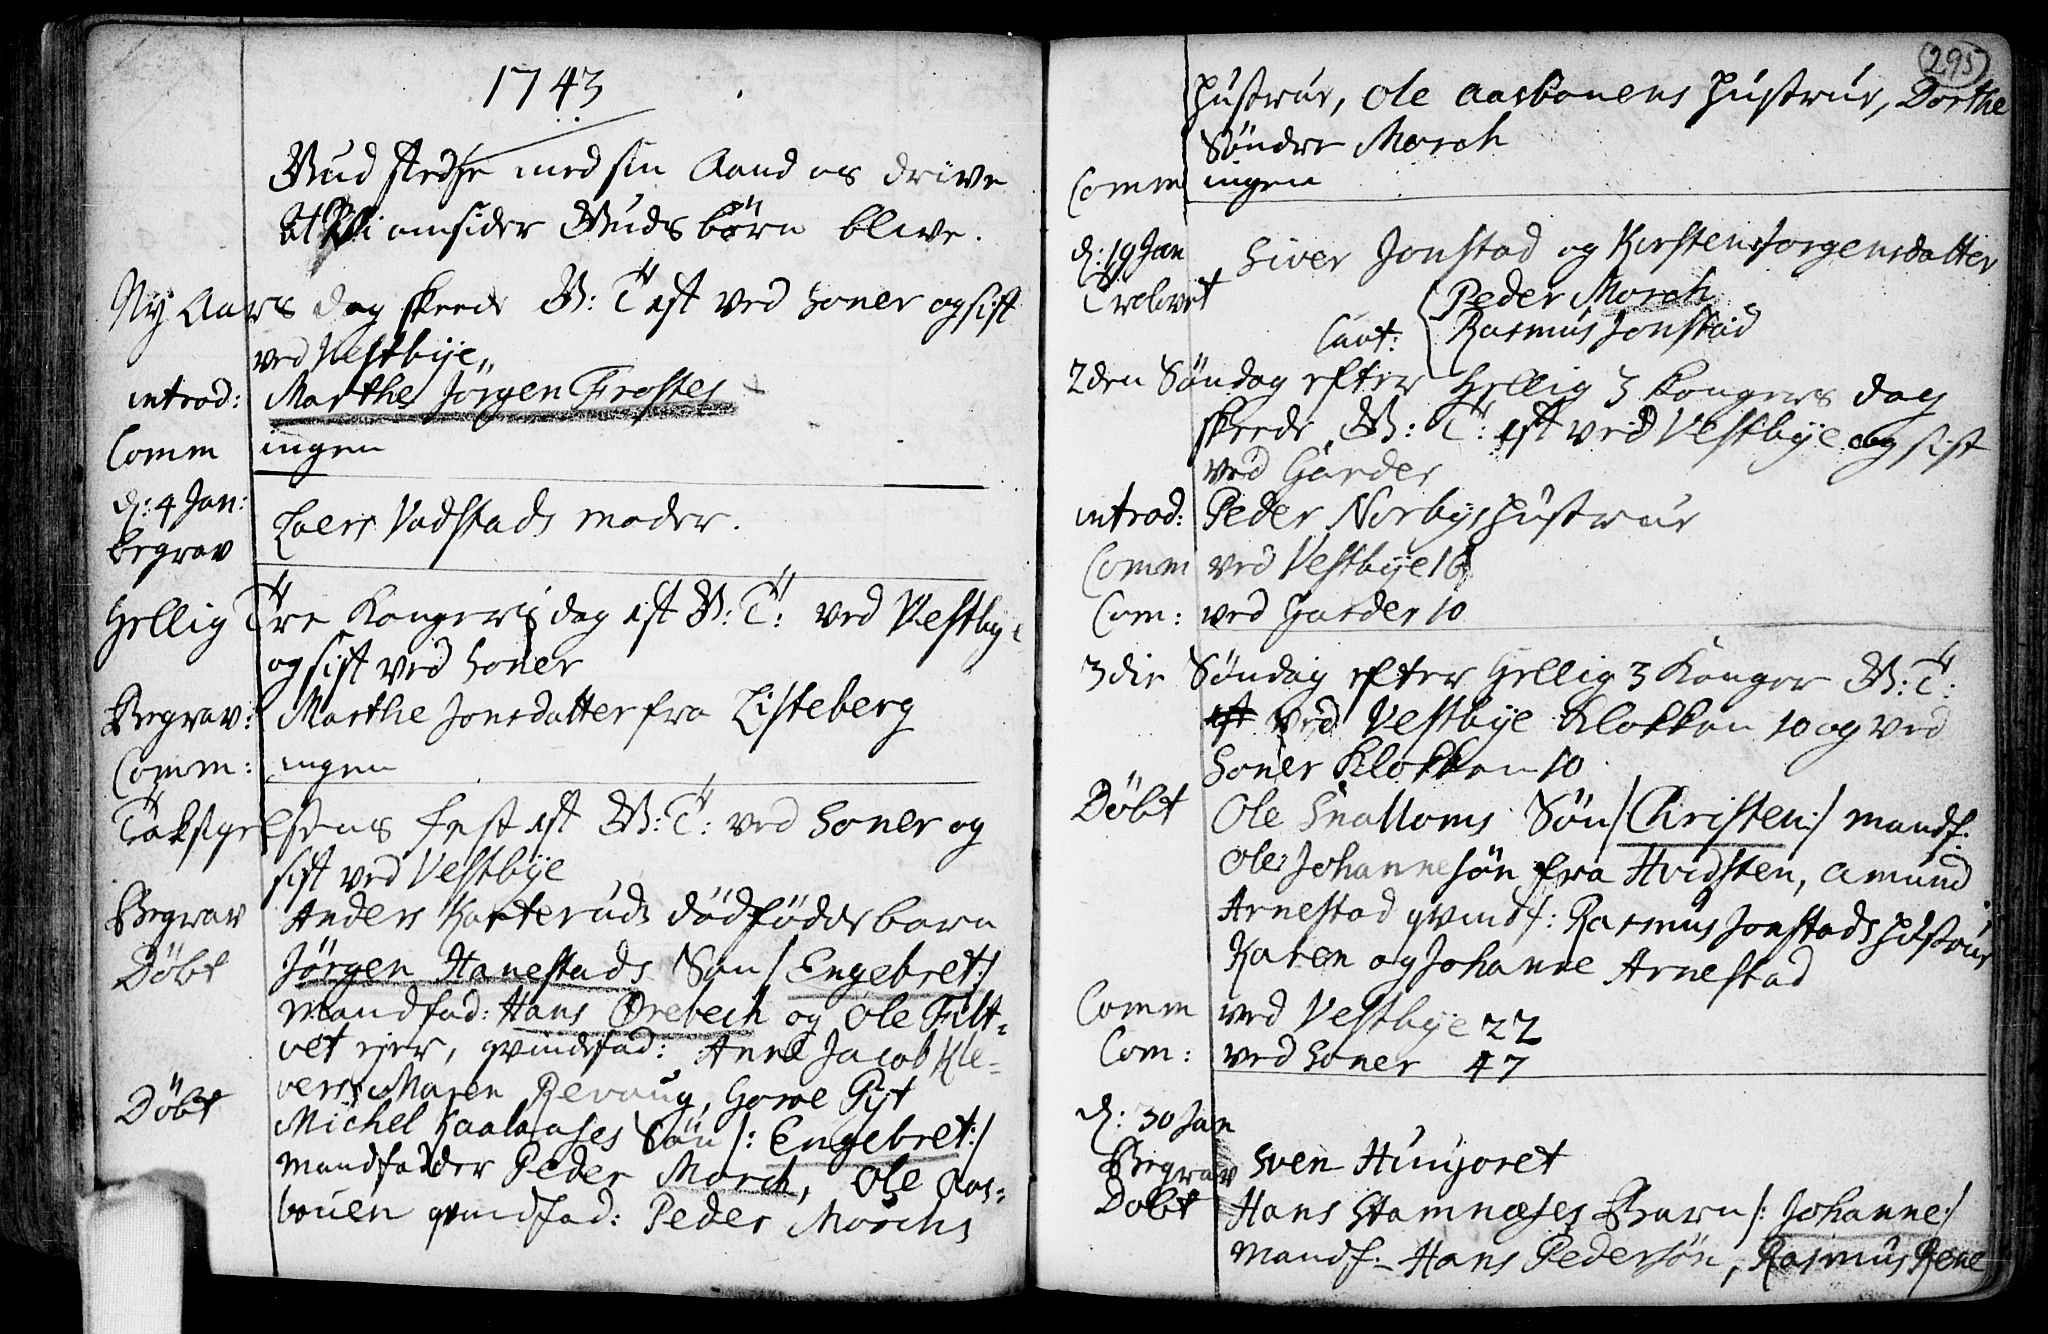 1743
Gud stedse med sin Aand os drive
At Vi omsider Guds børn blive.
Ny Aars dag skeede G: T 1st ved Soner og sist
ved Vestbye.
introd: Marthe Jörgen Frostes
Comm ingen
d: 4 Jan:
begrav Laers Vadstads moder.
Hellig Tre Kongers dag 1st G: T: ved Vestbye
og sist ved Soner
Begrav: Marthe Jonsdatter fra Listeberg
Comm: ingen
Taksigelsens fest 1st G: T: ved Soner og
sist ved Vestbye
Begrav Anders Katteruds dödfödde barn
Döbt Jörgen Hanestads Søn /: Engebret :/
Mandfad: Hans Örebech og Ole Filt-
vet ejer, qvindefad: Anne Jacob Kle-
vers, Maren Revoug, Gorve Pyt
Döbt Michel Kaalaases Sön /: Engebret :/
Mandfadder Peder Morch, Ole Aas-
bouen qvindfad: Peder Morchs
295
Hustrue, Ole Aasbouens Hustrue, Dorthe
Søndre Morch
Comm ingen
d: 19 Jan
Trolovet Siver Jonstad og Kirsten Jorgensdatter
Peder Morch
Caut: Rasmus Jonstad
2den Søndag efter Hellig 3 Kongers dag
skeede G: T: 1st ved Vestbye og sist
ved Garder
introd: Peder Norbys Hustrue
Comm ved Vestbye 16
Com: ved Garder 10
3die Søndag efter Hellig 3 Konger G: T:
1st ved Vestbye Klokken 10 og ved
Soner Klokken 10
Döbt Ole Snalloms Søn /: Christen :/ mandf:
Ole Johannesön fra Hvidsten, Amund
Arnestad qvindf: Rasmus Jonstads Hustrue
Karen og Johanne Arnestad
Comm ved Vestbye 22
Com: ved Soner 47
d: 30 Jan
Begrav Sven Hunjoret
Döbt Hans Stamnæses Barn /: Johanne :/
Mandf: Hans Pedersön, Rasmus Rene